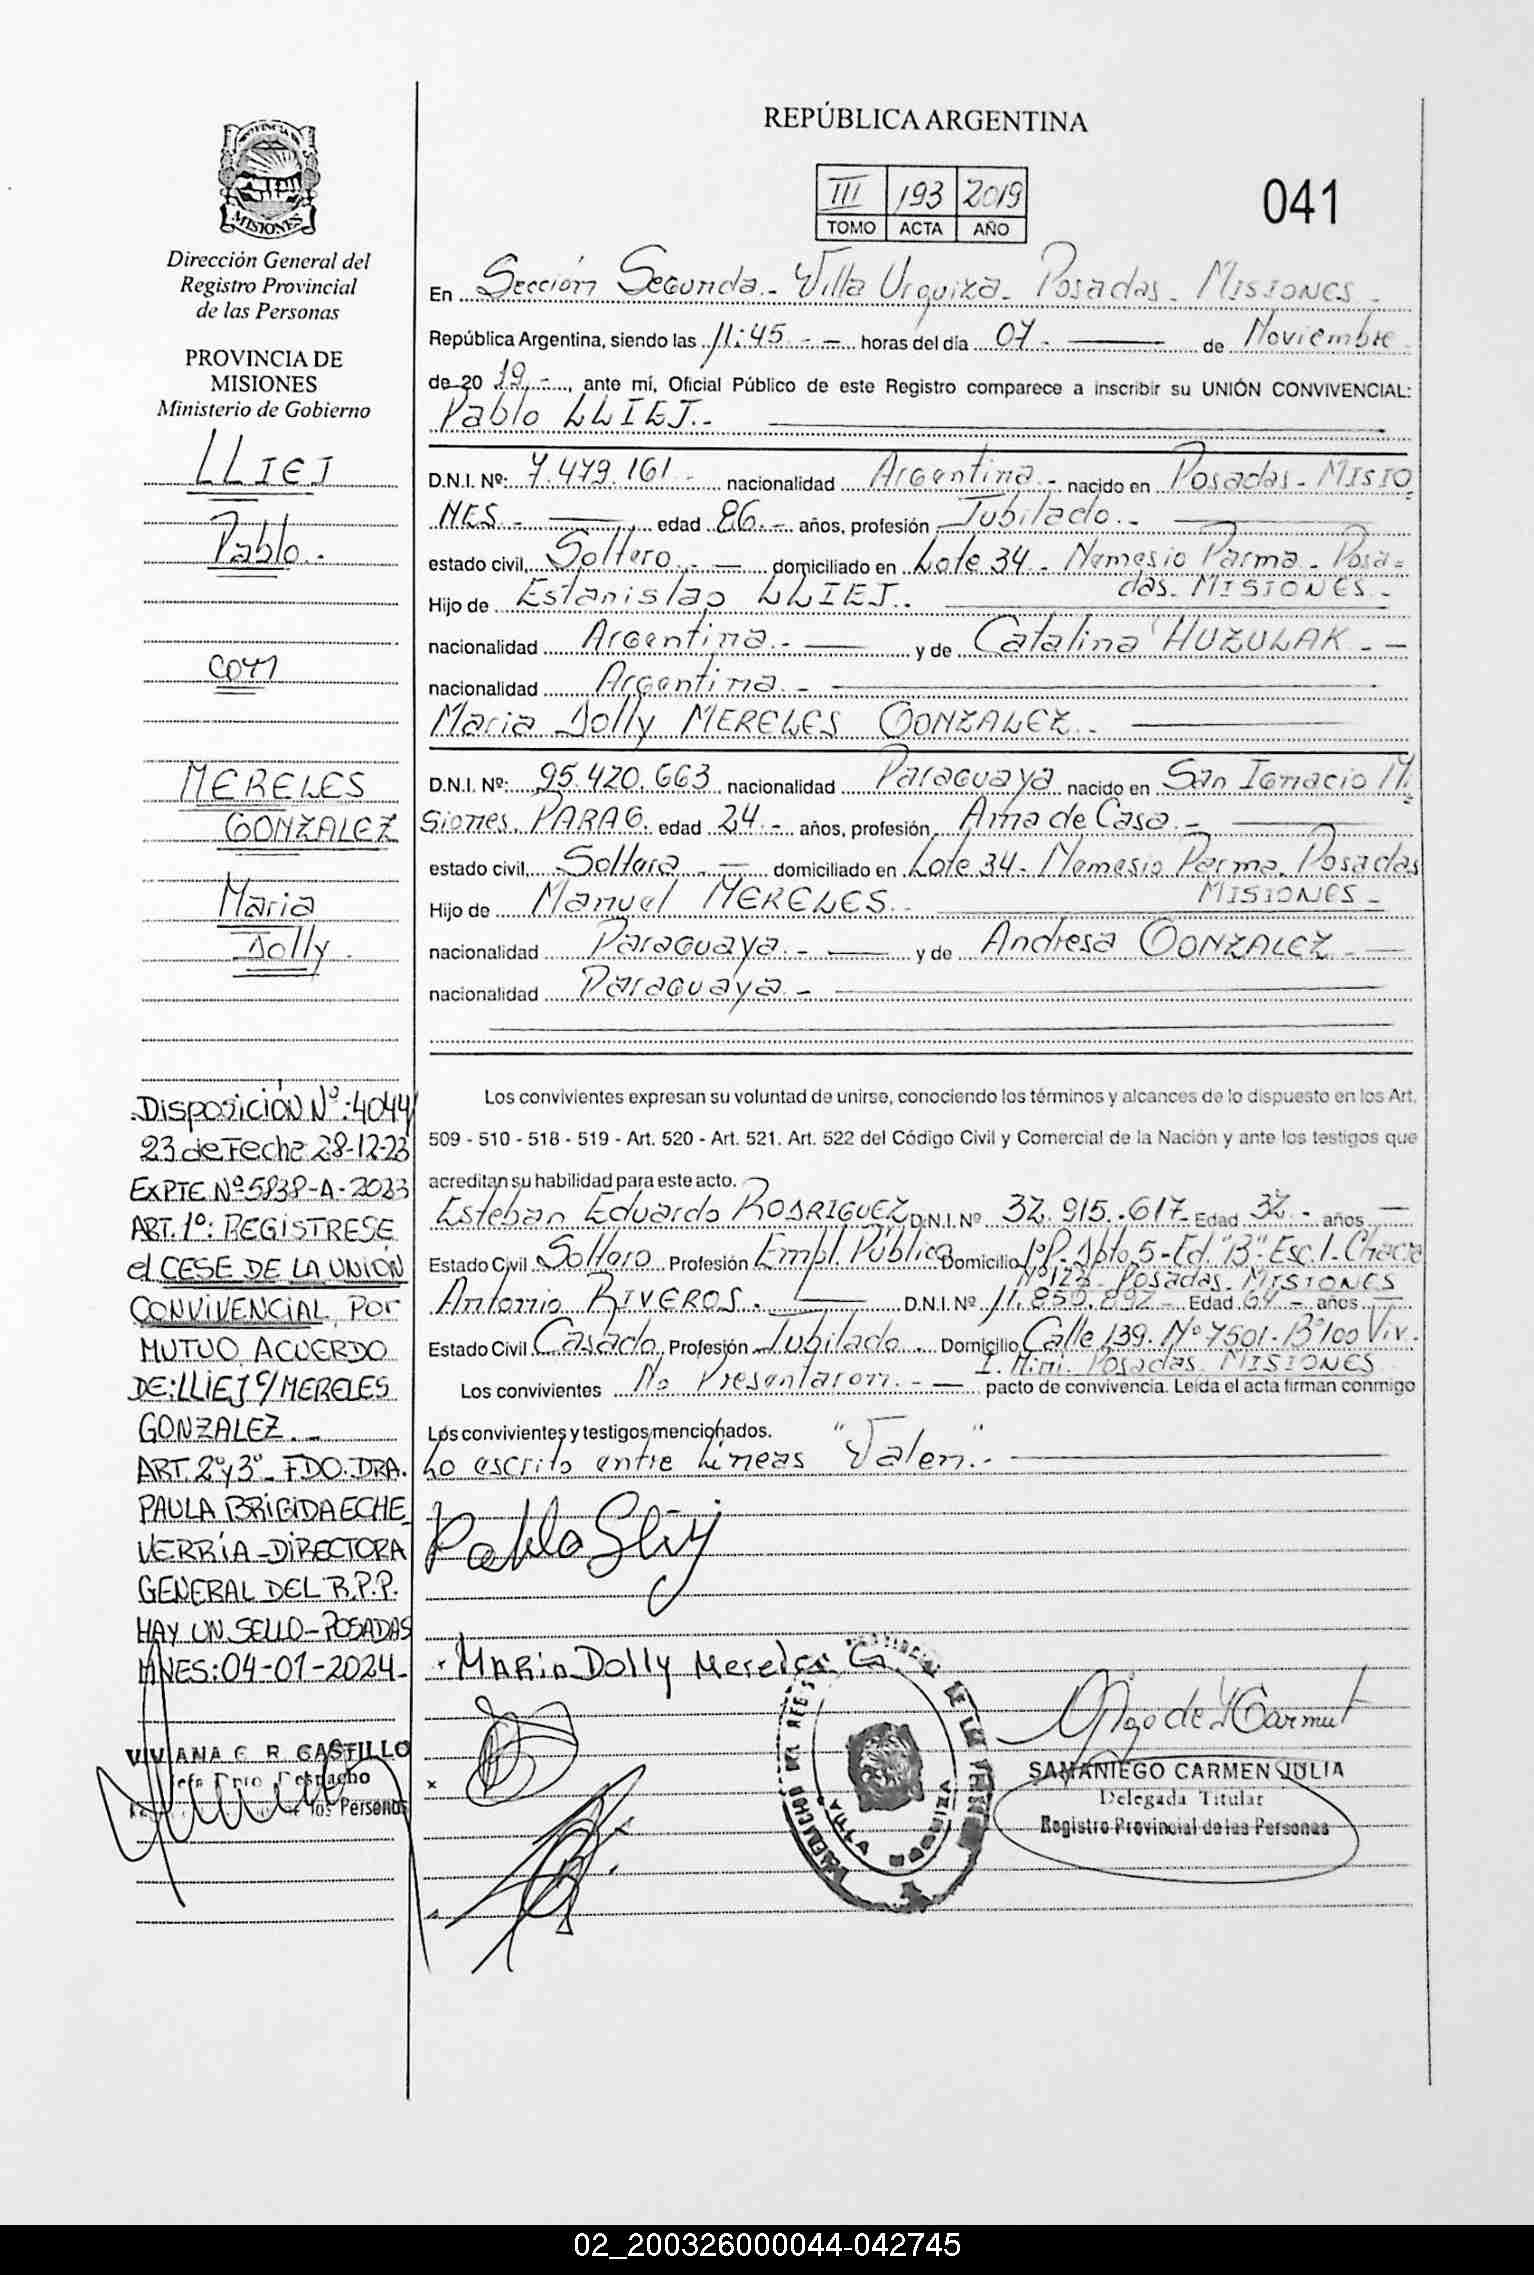 REPÚBLICA ARGENTINA
III 193 2019
TOMO ACTA AÑO
041
PROVINCIA DE
MISIONES
Dirección General del
Registro Provincial
de las Personas
PROVINCIA DE
MISIONES
Ministerio de Gobierno
LLIEJ
Pablo.-
con
MERELES
GONZALEZ
Maria
Dolly.
Disposición Nº:4044/
23 de Fecha 28-12-23
EXPTE Nº 5838-A-2023
ART. 1º: REGISTRESE
el CESE DE LA UNION
CONVIVENCIAL POR
MUTUO ACUERDO
DE: LLIEJ c/ MERELES
GONZALEZ.-
ART. 2º y 3º_ FDO. DRA.
PAULA BRIGIDA ECHE_
VERRÍA - DIRECTORA
GENERAL DEL R.P.P.
HAY UN SELLO - POSADAS
MNES: 04-01-2024-
VIVIANA C. R. CASTILLO
Jefa Dpto. Despacho
de las Personas
En Sección Segunda.- Villa Urquiza- Posadas- MISIONES-
República Argentina, siendo las 11:45.- horas del día 07- de Noviembre
de 20 19.-, ante mí, Oficial Público de este Registro comparece a inscribir su UNIÓN CONVIVENCIAL:
Pablo LLIEJ.-
D.N.I. Nº: 7.479.161.- nacionalidad Argentina.- nacido en Posadas- MISIO=
NES.- edad 86.- años, profesión Jubilado.-
estado civil, Soltero.- domiciliado en Lote 34- Nemesio Parma- Posa=
das- MISIONES-
Hijo de Estanislao LLIEJ.-
nacionalidad Argentina.- y de Catalina HUZULAK.-
nacionalidad Argentina.-
Maria Dolly MERELES GONZALEZ.-
D.N.I. Nº: 95.420.663 nacionalidad Paraguaya nacido en San Ignacio Mi=
siones, PARAG. edad 24.- años, profesión Ama de Casa.-
estado civil, Soltera.- domiciliado en Lote 34- Nemesio Parma. Posadas
MISIONES-
Hijo de Manuel MERELES.-
nacionalidad Paraguaya.- y de Andresa GONZALEZ-
nacionalidad Paraguaya.-
Los convivientes expresan su voluntad de unirse, conociendo los términos y alcances de lo dispuesto en los Art.
509 - 510 - 518 - 519 - Art. 520 - Art. 521. Art. 522 del Código Civil y Comercial de la Nación y ante los testigos que
acreditan su habilidad para este acto.
Esteban Eduardo RODRIGUEZ D.N.I. Nº 32.915.617- Edad 32- años
Estado Civil Soltero Profesión Empl. Público Domicilio 1ºP. Dpto. 5- Ed. "B"- Esc. 1- Chacra
Nº 123- Posadas- MISIONES
Antonio RIVEROS. D.N.I. Nº 11.850.892- Edad 64- años
Estado Civil Casado Profesión Jubilado. Domicilio Calle 139. Nº 7501- Bº 100 Viv.
I. Mini. Posadas- MISIONES
Los convivientes No Presentaron.- pacto de convivencia. Leída el acta firman conmigo
Los convivientes y testigos mencionados.
Lo escrito entre líneas "Valen".-
Pablo Lliej
MARIA Dolly Mereles G.
VILLA URQUIZA
SAMANIEGO CARMEN JULIA
Delegada Titular
Registro Provincial de las Personas
02_200326000044-042745